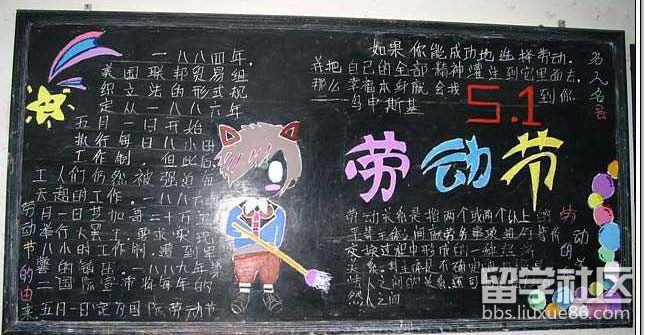 一八八四年，
美国联邦贸易组
织立法的形式规
定从一八八六年
五月一日开始
执行每日八小时
工作制，但此后
工人们仍然被强迫每
天超的工作。一八八六
年五月一日芝加哥二十万工
举行大罢工，要求实现
八小时工作制，遭到军
警的镇压。一八八九年第
二国际宣布将每年的
五月一日定为国际劳动节
劳动节的由来
如果你能成功地选择劳动，
并把自己的全部精神灌注到它里面去，
那么幸福本身就会找到你
——乌申斯基
5.1
名人名言
劳动节
劳动关系是指两个或两个以上的
平等主体之间就劳务事项进行等价
交换过程中形成的一种经济
关系。其主体是不确定的
法人之间的关系，
然人之间
劳动的
留学社区
bbs.liuxue86.com